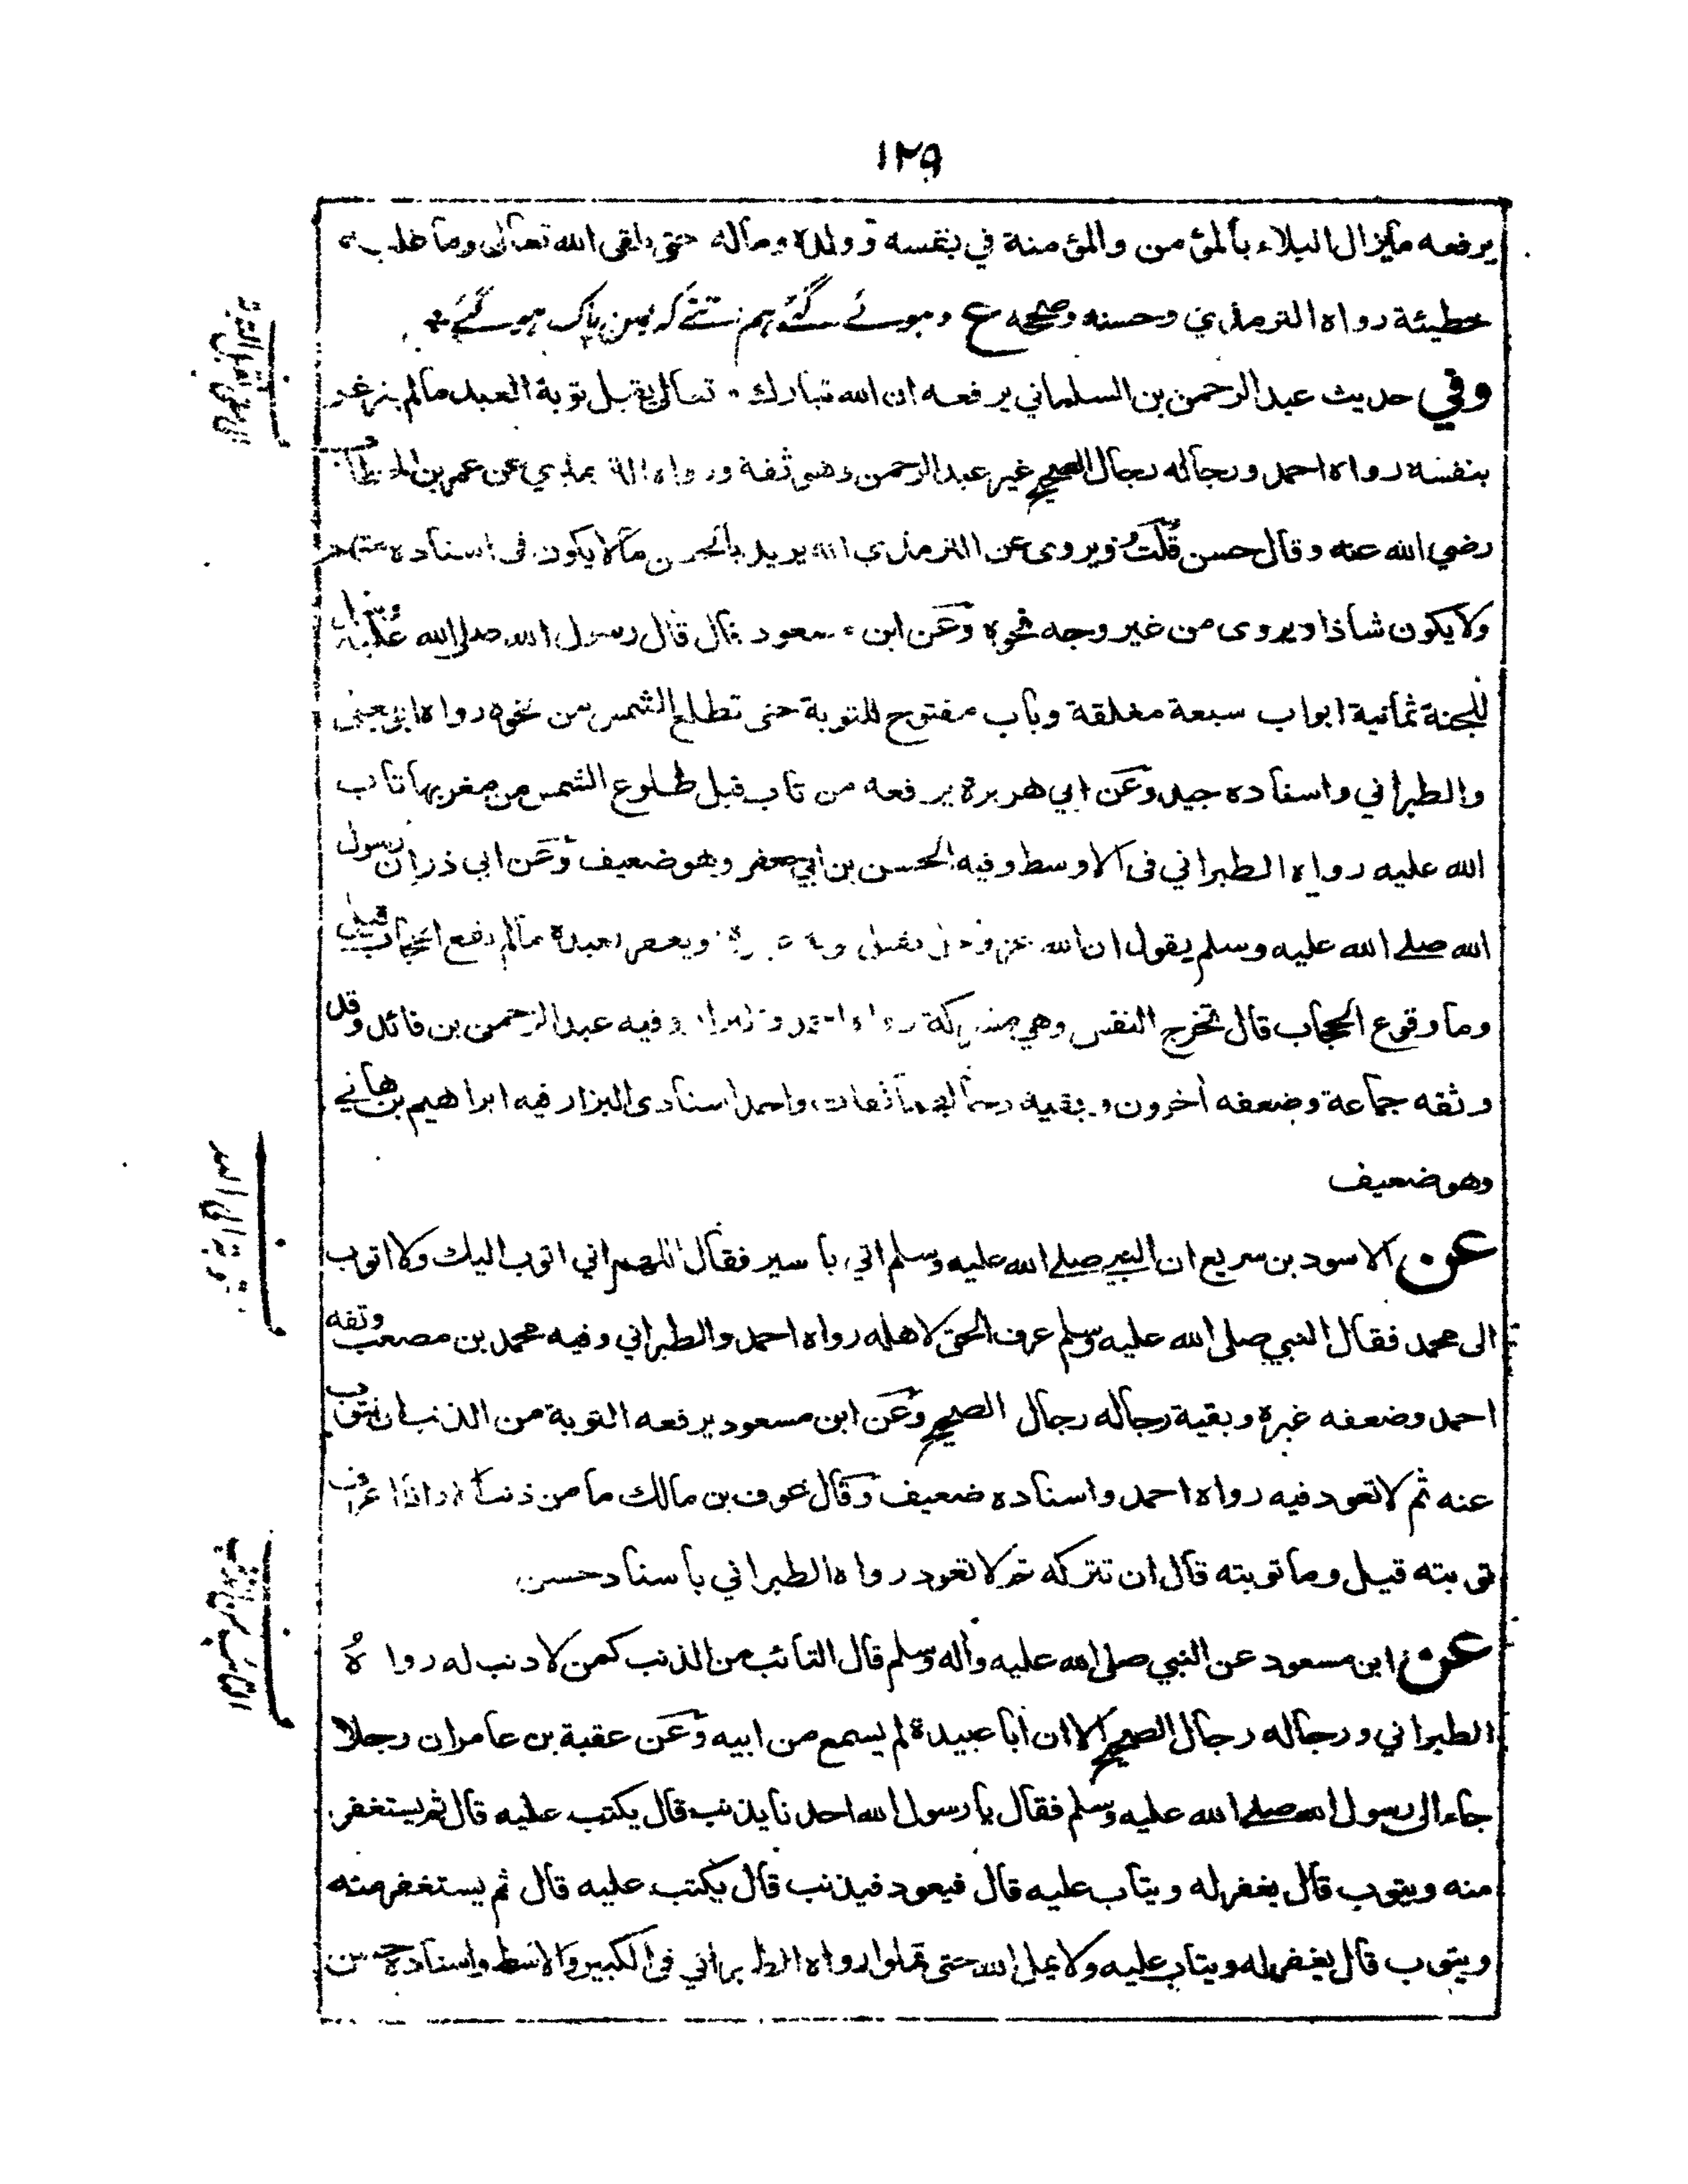 ١٢٩
يرفعه مايزال البلاء بالمؤمن والمؤمنة في نفسه وولده وماله حتى يلقى الله تعالى وما عليه
خطيئة رواه الترمذي وحسنه وصححه ع دهوئے گئے ہم اتنے کہ بس پاک ہوگئے
وفي حديث عبد الرحمن بن السلماني يرفعه ان الله تبارك وتعالى يقبل توبة العبد مالم يغرغر
بنفسه رواه احمد ورجاله رجال الصحيح غير عبد الرحمن وهو ثقة ورواه الترمذي عن عمر بن الخطاب
رضي الله عنه وقال حسن قلت ويروى عن الترمذي انه يريد بالحسن مالا يكون في اسناده متهم
ولا يكون شاذا ويروى من غير وجه نحوه وعن ابن مسعود قال قال رسول الله صلى الله عليه
للجنة ثمانية ابواب سبعة مغلقة وباب مفتوح للتوبة حتى تطلع الشمس من نحوه رواه ابو يعلى
والطبراني واسناده جيد وعن ابي هريرة يرفعه من تاب قبل طلوع الشمس من مغربها تاب
الله عليه رواه الطبراني في الاوسط وفيه الحسن بن ابي جعفر وهو ضعيف وعن ابي ذر ان رسول
الله صلے الله عليه وسلم يقول ان الله عز وجل يقبل ويغفر لعبده مالم يقع الحجاب قيل
وما وقوع الحجاب قال تخرج النفس وهي مشركة رواه احمد والبزار وفيه عبد الرحمن بن قائد وقد
وثقه جماعة وضعفه اخرون وبقية رجالهما ثقات واحد اسنادى البزار فيه ابراهيم بن هاني
وهو ضعيف
عن الاسود بن سريع ان النبي صلے الله عليه وسلم اتي باسير فقال اللهم اني اتوب اليك ولا اتوب
الى محمد فقال النبي صلى الله عليه وسلم عرف الحق لاهله رواه احمد والطبراني وفيه محمد بن مصعب وثقه
احمد وضعفه غيره وبقية رجاله رجال الصحيح وعن ابن مسعود يرفعه التوبة من الذنب ان يتوب
عنه ثم لا تعود فيه رواه احمد واسناده ضعيف وقال عوف بن مالك ما من ذنب الا وانا اعرف
توبته قيل وما توبته قال ان تتركه ثم لا تعود رواه الطبراني باسناد حسن
عن ابن مسعود عن النبي صلى الله عليه وآله وسلم قال التائب من الذنب كمن لا ذنب له رواه
الطبراني ورجاله رجال الصحيح الا ان ابا عبيدة لم يسمع من ابيه وعن عقبة بن عامر ان رجلا
جاء الى رسول الله صلے الله عليه وسلم فقال يا رسول الله احدنا يذنب قال يكتب عليه قال ثم يستغفر
منه ويتوب قال يغفر له ويتاب عليه قال فيعود فيذنب قال يكتب عليه قال ثم يستغفر منه
ويتوب قال يغفر له ويتاب عليه ولا يمل الله حتى تملوا رواه الطبراني في الكبير والاوسط واسناده حسن